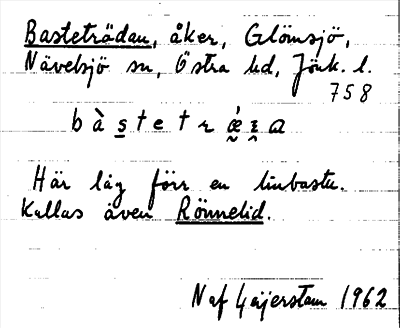 Basteträdan, åker, Glömsjö,
Nävelsjö sn, Östra hd, Jönk. l.
758
bàstetrǽɪa
Här låg förr en linbastu.
Kallas även Rönnelid.
N af Geijerstam 1962